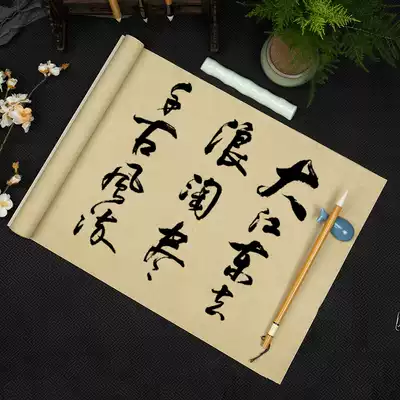 大江東去
浪淘尽
千古風流